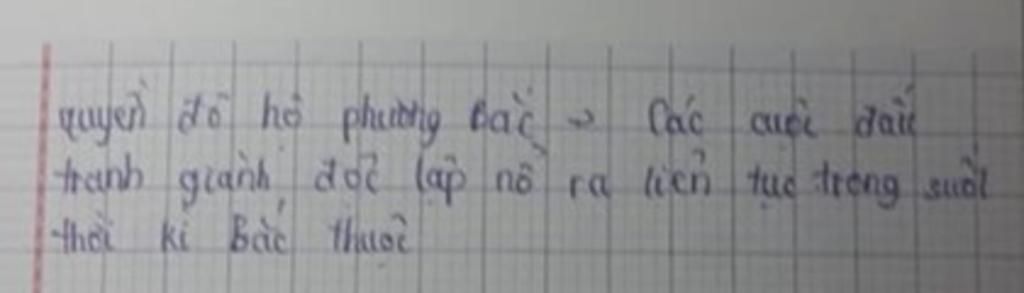 quyền đô hộ phương Bắc → Các cuộc đấu
tranh giành độc lập nổ ra liên tục trong suốt
thời kì Bắc thuộc